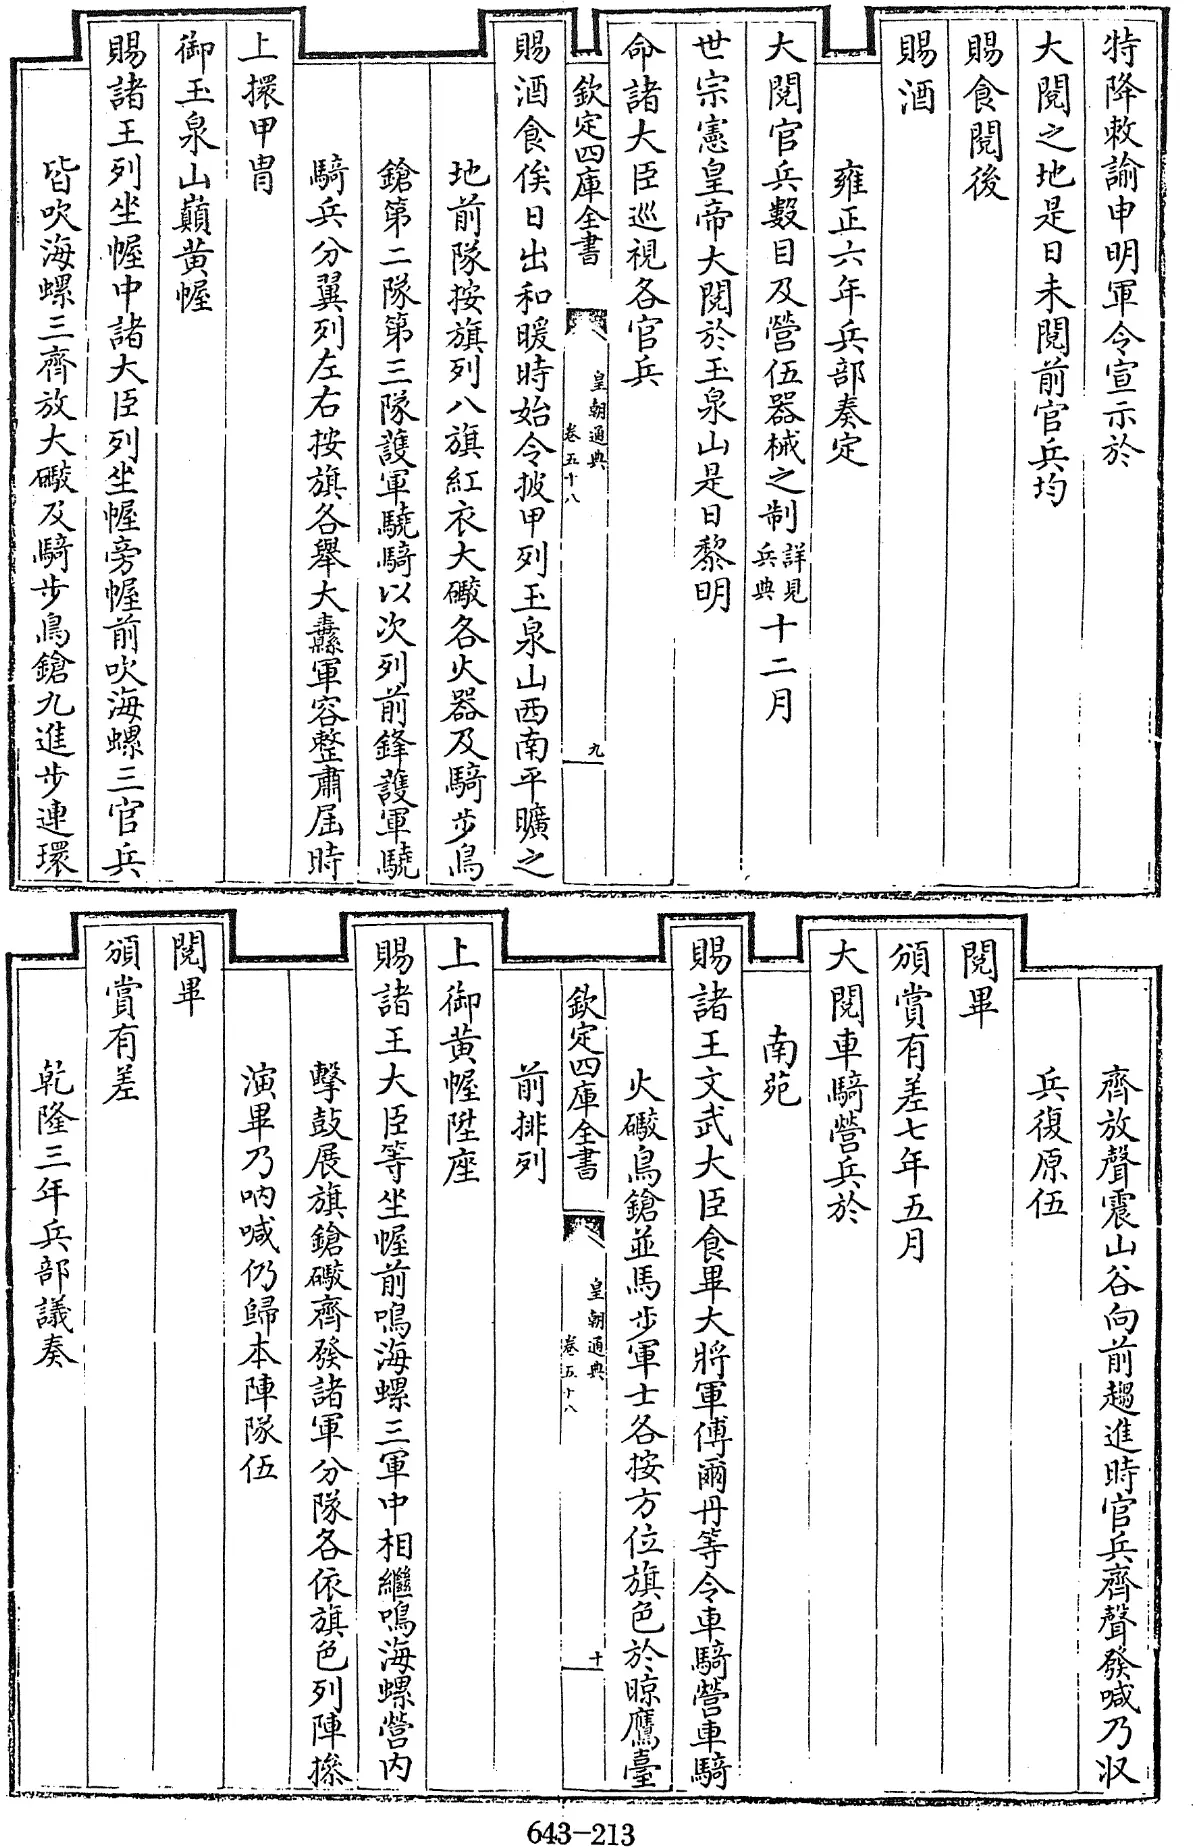 特降敕諭申明軍令宣示於
大閱之地是日未閱前官兵均
賜食閱後
賜酒
雍正六年兵部奏定
大閱官兵數目及營伍器械之制詳見兵典十二月
世宗憲皇帝大閱於玉泉山是日黎明
命諸大臣巡視各官兵
欽定四庫全書
皇朝通典
卷五十八
九
賜酒食俟日出和暖時始令披甲列玉泉山西南平曠之
地前隊按旗列八旗紅衣大礮各火器及騎步鳥
鎗第二隊第三隊護軍驍騎以次列前鋒護軍驍
騎兵分翼列左右按旗各舉大纛軍容整肅屆時
上擐甲冑
御玉泉山巔黃幄
賜諸王列坐幄中諸大臣列坐幄旁幄前吹海螺三官兵
皆吹海螺三齊放大礮及騎步鳥鎗九進步連環
齊放聲震山谷向前趨進時官兵齊聲發喊乃收
兵復原伍
閱畢
頒賞有差七年五月
大閱車騎營兵於
南苑
賜諸王文武大臣食畢大將軍傅爾丹等令車騎營車騎
火礮鳥鎗並馬步軍士各按方位旗色於晾鷹臺
欽定四庫全書
皇朝通典
卷五十八
十
前排列
上御黃幄陞座
賜諸王大臣等坐幄前鳴海螺三軍中相繼鳴海螺營內
擊鼓展旗鎗礮齊發諸軍分隊各依旗色列陣操
演畢乃吶喊仍歸本陣隊伍
閱畢
頒賞有差
乾隆三年兵部議奏
643-213